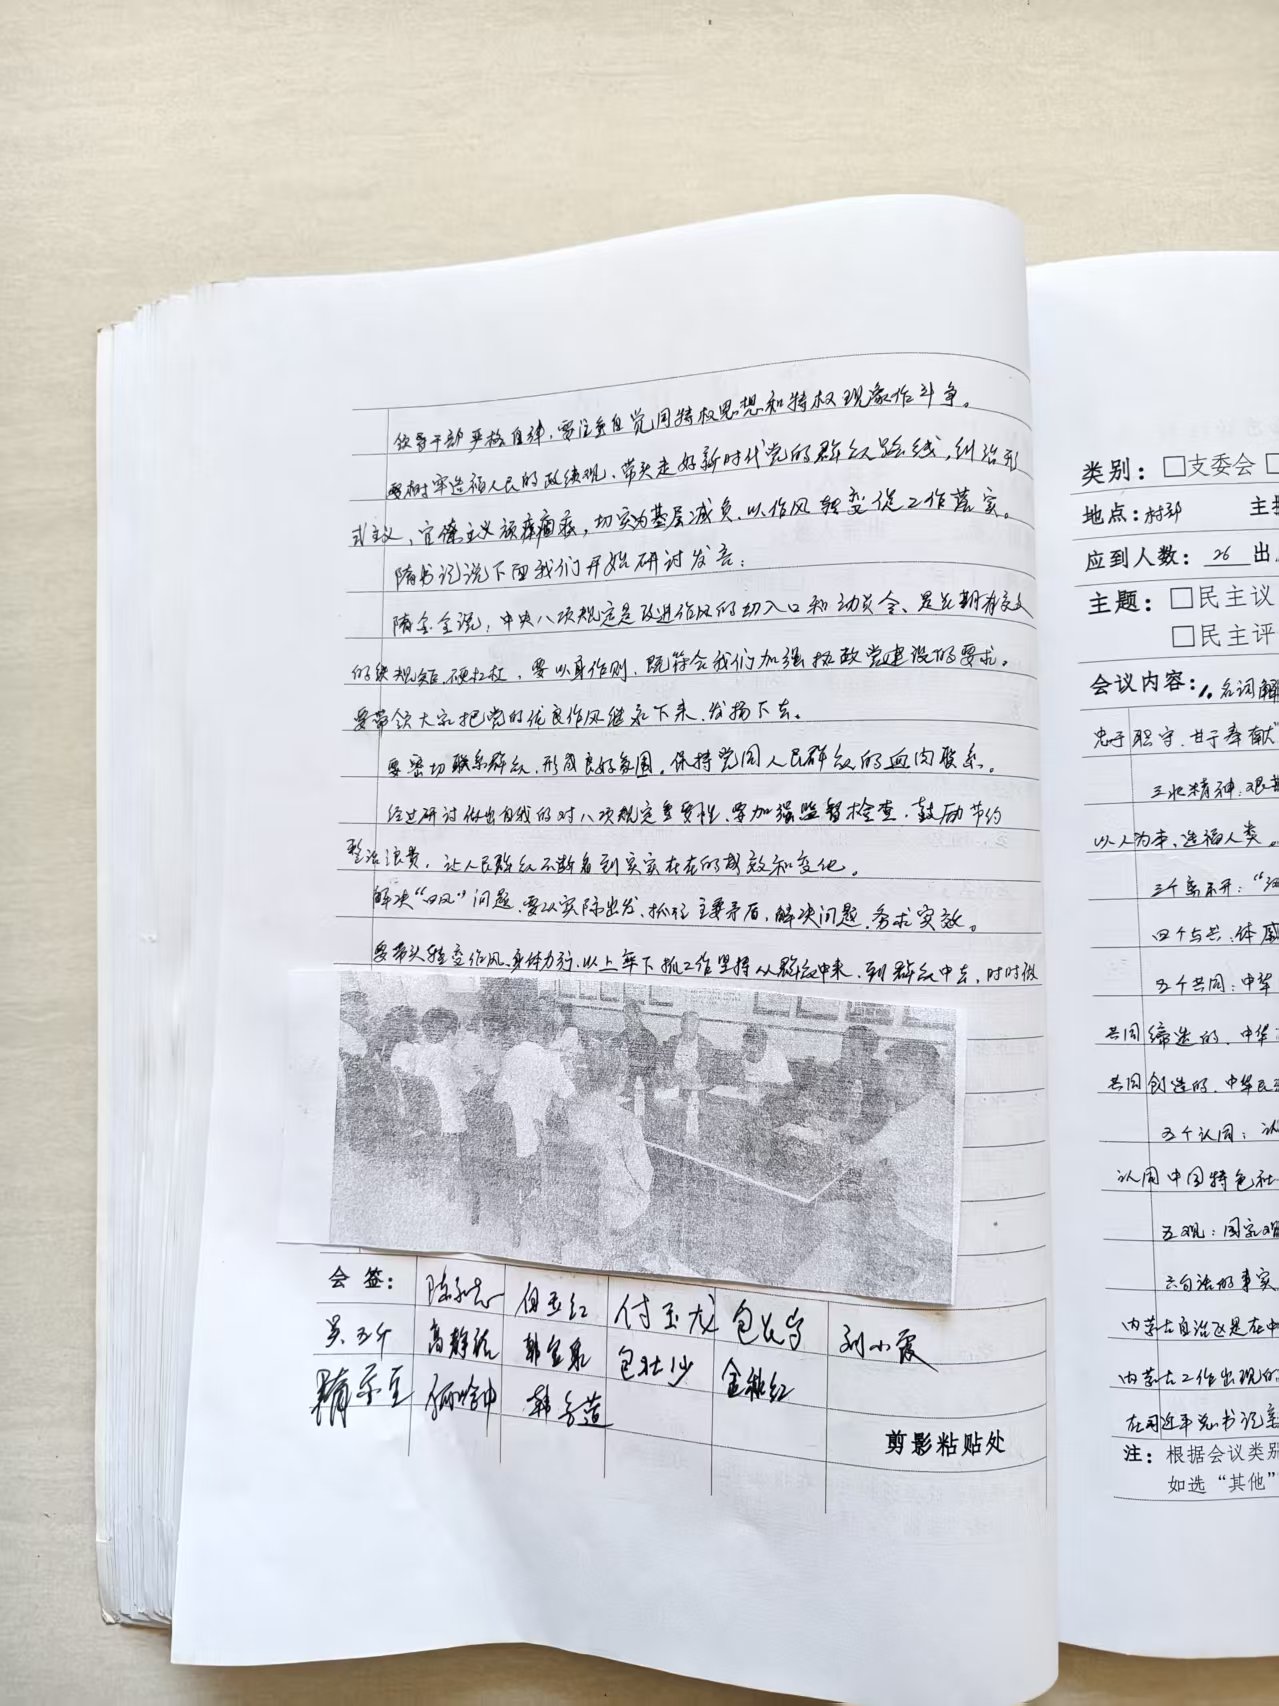 领导干部严格自律，要注重自觉同特权思想和特权现象作斗争。
要树牢造福人民的政绩观、带头走好新时代党的群众路线，纠治形
式主义、官僚主义顽瘴痼疾，切实为基层减负、以作风转变促工作落实。
隋书记说下面我们开始研讨发言：
隋金全说：中央八项规定是改进作风的切入口和动员令、是
的铁规矩、硬杠杠，要以身作则、既符合我们加强执政党建设的要求。
要带领大家把党的优良作风继承下来、发扬下去。
要密切联系群众，形成良好氛围，保持党同人民群众的血肉联系。
经过研讨做出自我的对八项规定重要性、要加强监督检查，鼓励节约
整治浪费，让人民群众不断看到实实在在的成效和变化。
解决“四风”问题，要从实际出发，抓住主要矛盾，解决问题，务求实效。
要带头转变作风、身体力行，以上率下抓工作坚持从群众中来，到群众中去，时时做
会签：
白玉红 付玉龙 刘小霞
高静 包壮沙
剪影粘贴处
类别：□支委会 □
地点：村部 主
应到人数：26 出
主题：□民主议
□民主评
会议内容：1。名词解
忠于职守，甘于奉献
三北精神：艰
以人为本，造福人类。
三个离不开：“汉
四个与共：体
五个共同：中华
共同缔造的，中华
共同创造的，中华民
五个认同：认
认同中国特色社
五观：国家观
内蒙古自治区是在中
内蒙古工作出现的
在习近平总书记亲
注：根据会议类别
如选“其他”